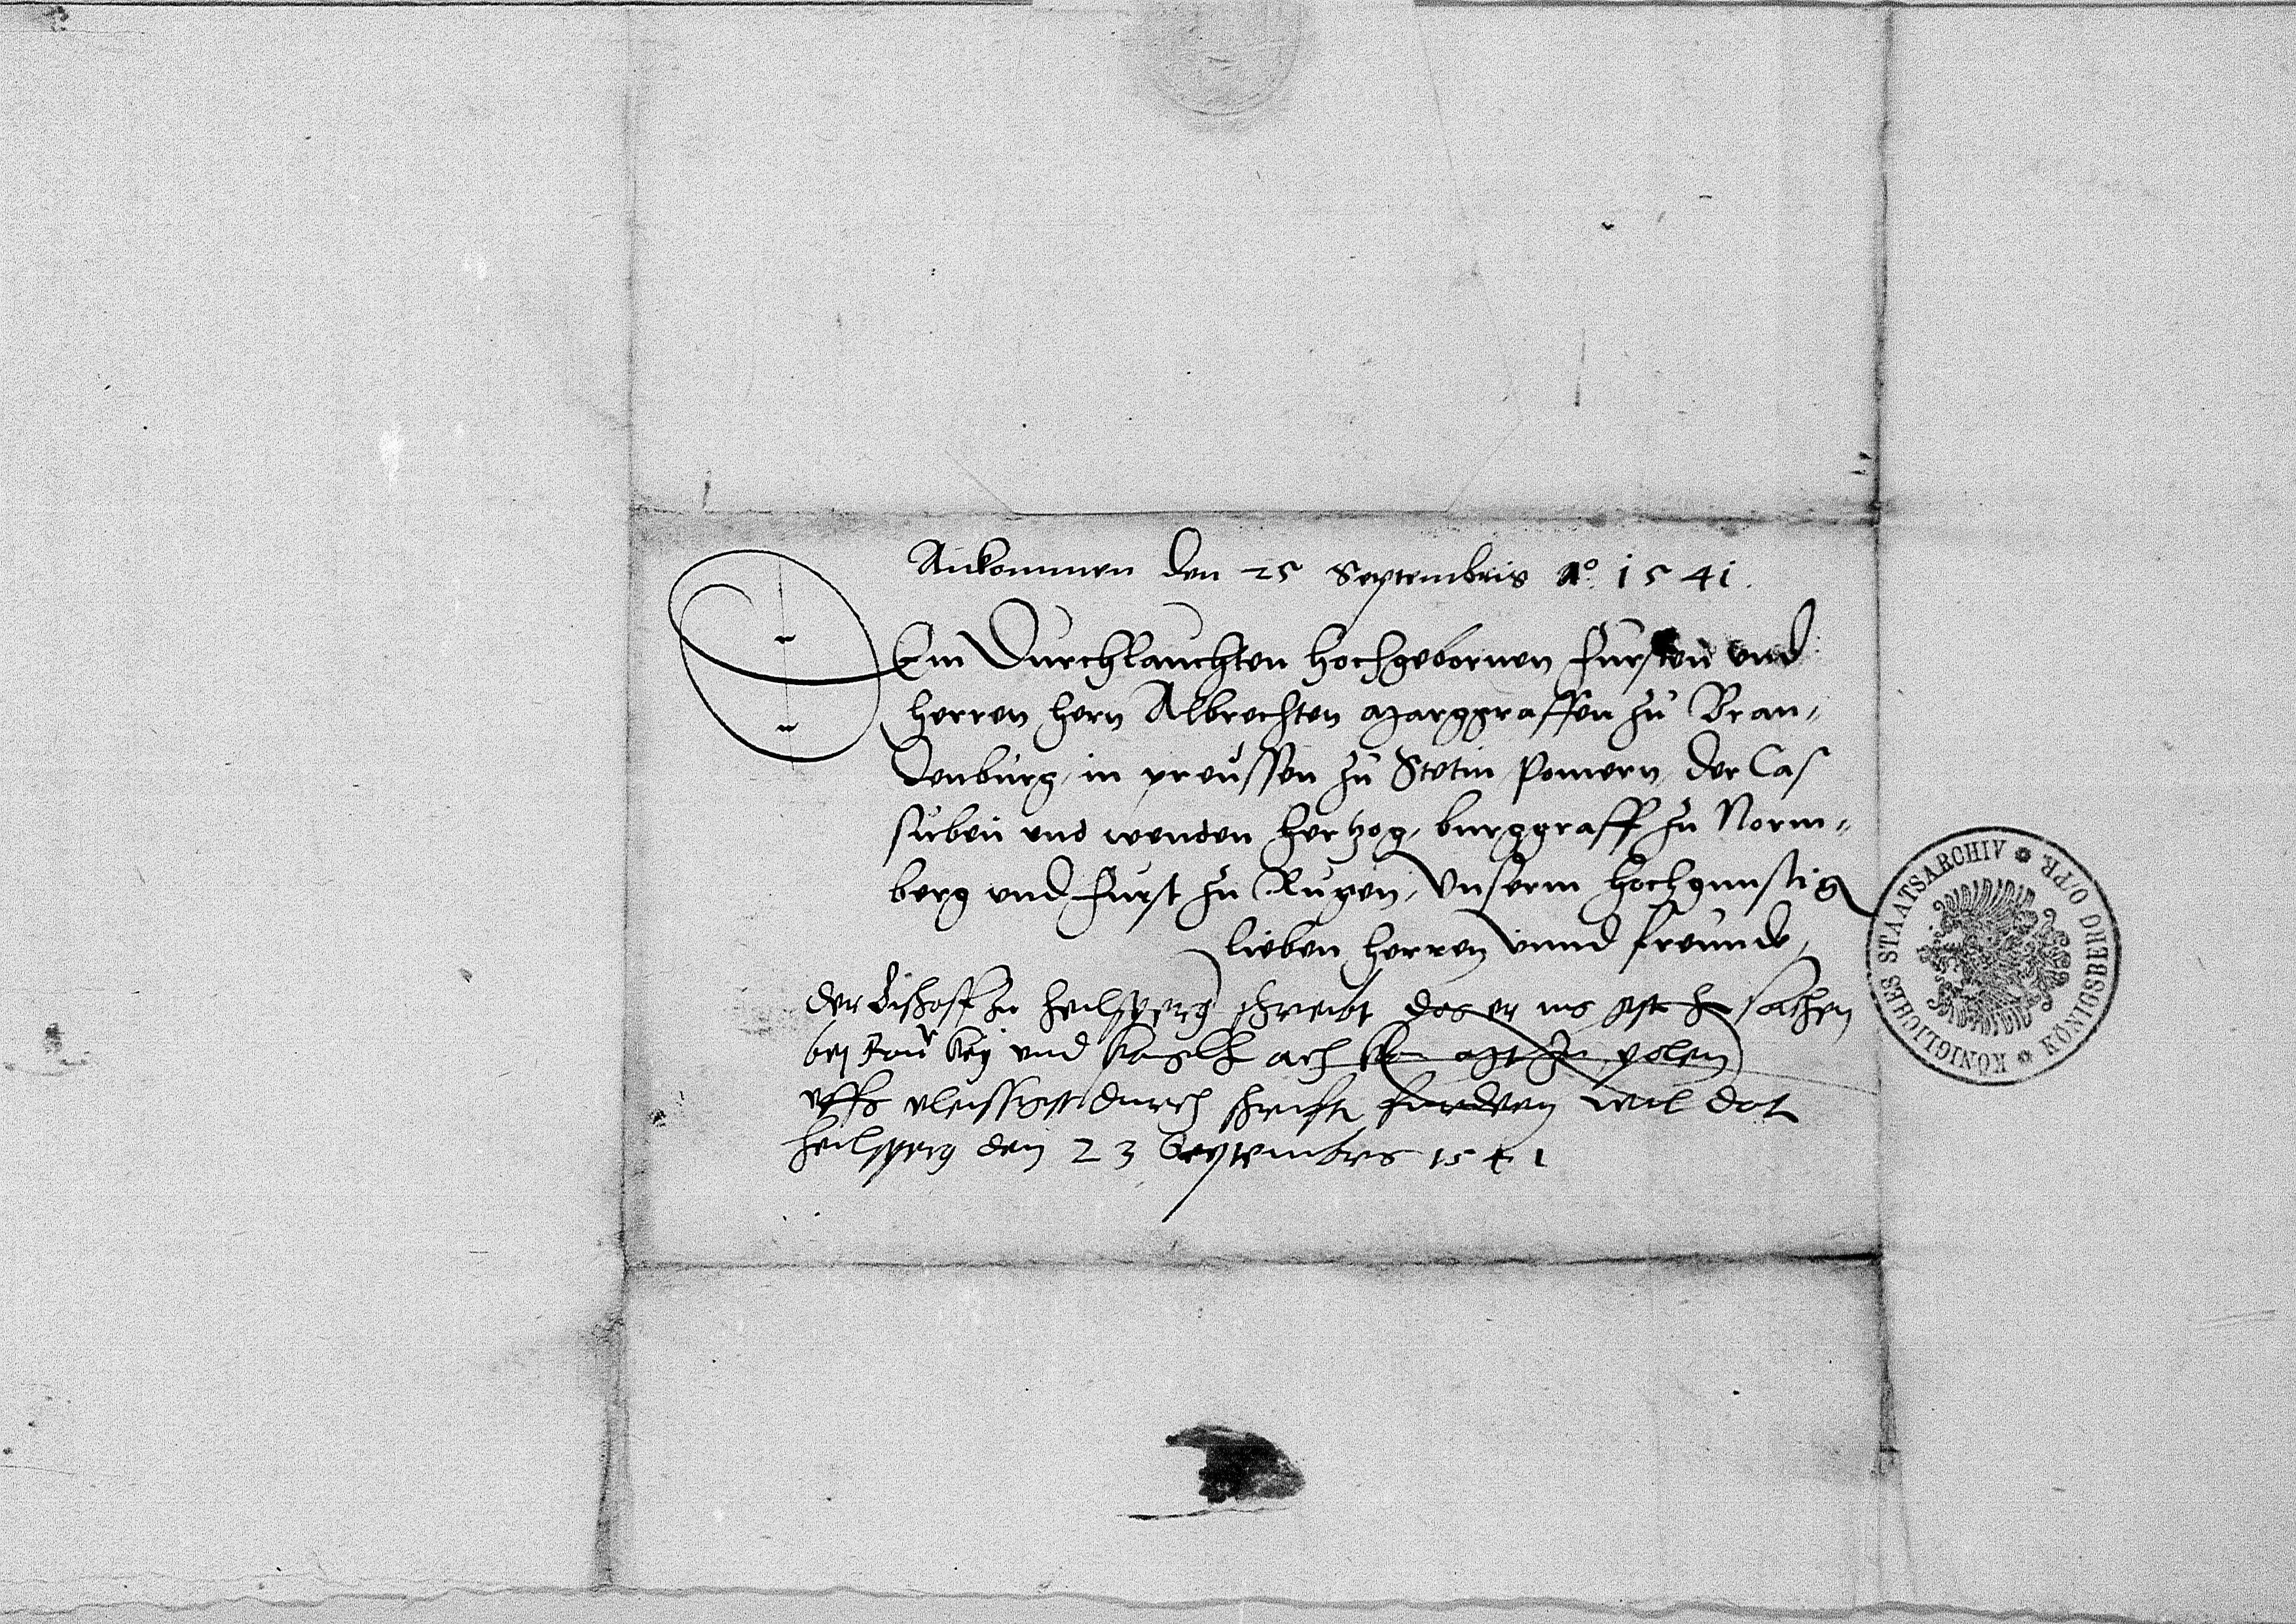 Ankommen den 25 Septembris Aº. 1541.
DEm Durchlauchten hochgebornen fursten und
herren hern Albrechten Marggraffen zu Bran„
denburg, in preussen zu Stetin Pomern, der Cas
suben und wenden hertzog, burggraff zu Norm„
berg und furst zu Rugen, Unserm hochgunstig
lieben herren unnd freunde,
der Bischoff zu heilsperg schreibt das er sachen
bej und polen
uffs vleissigst durch schrifft furdern wil dat
heilsperg den 23 Septembris 1541
KÖNIGLICHES STAATSARCHIV * KÖNIGSBERG O/PR. *